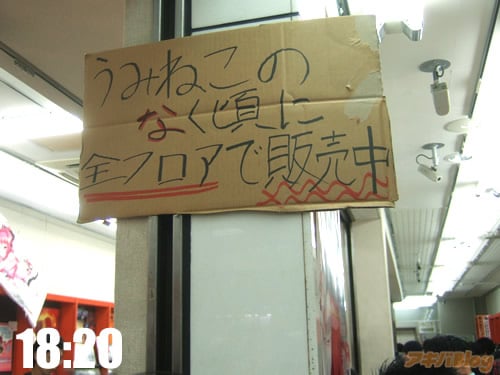 うみねこの
なく頃に
全フロアで販売中
18:20
アキバBlog